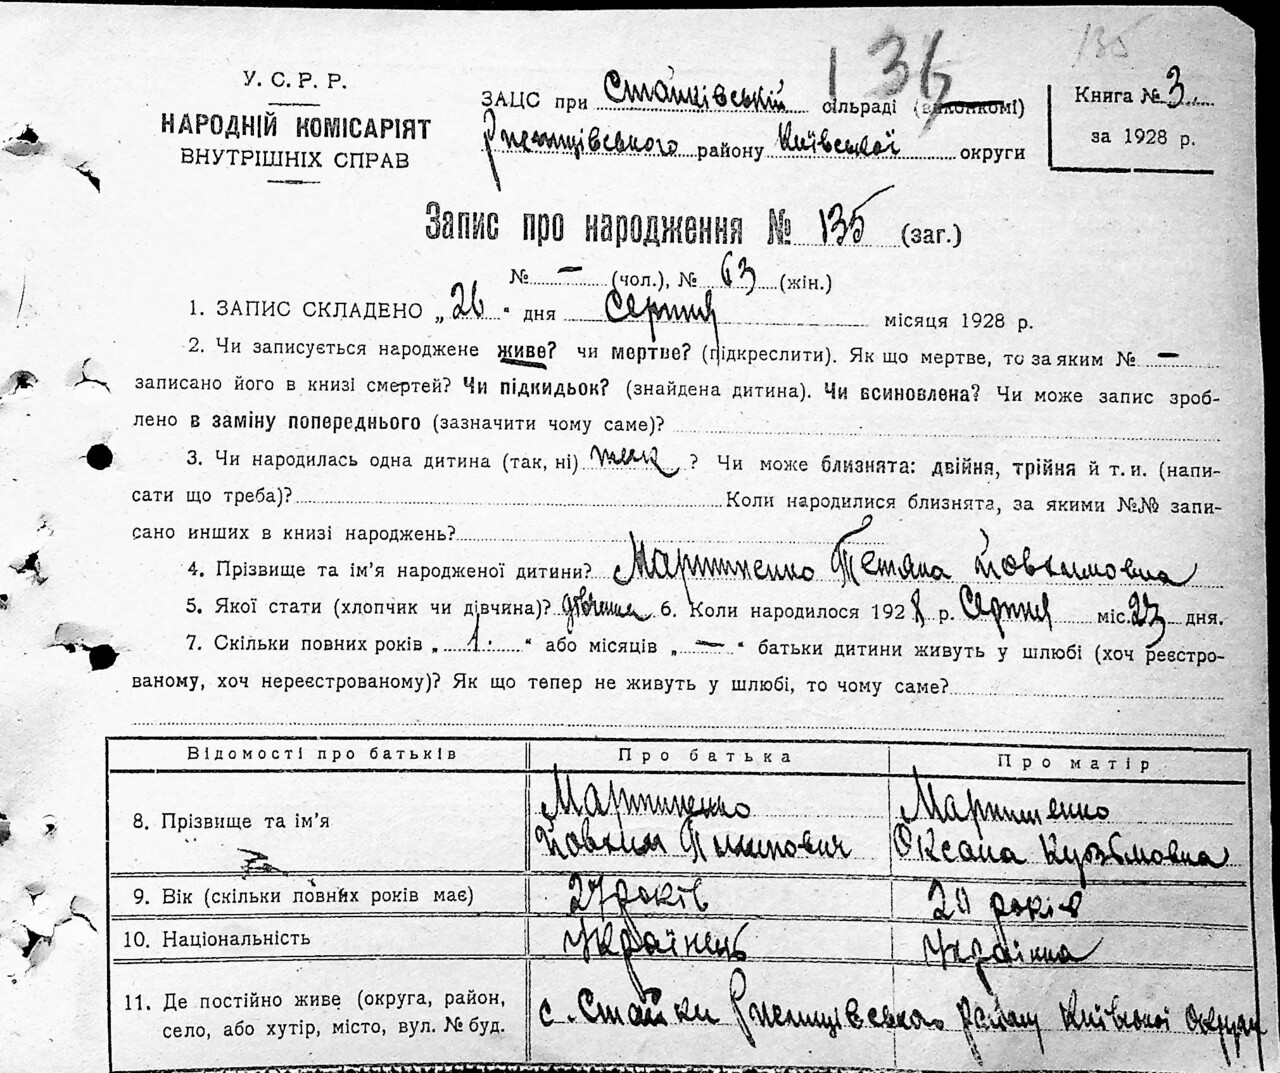 136
135
У. С. Р. Р.
НАРОДНІЙ КОМІСАРІЯТ
ВНУТРІШНІХ СПРАВ
ЗАЦС при Стайківській сільраді (виконкомі)
Ржищівського району Київської округи
Книга № 3
за 1928 р.
Запис про народження № 135 (заг.)
№ — (чол.), № 63 (жін.)
1. ЗАПИС СКЛАДЕНО „26“ дня Серпня місяця 1928 р.
2. Чи записується народжене живе? чи мертве? (підкреслити). Як що мертве, то за яким № —
записано його в книзі смертей? Чи підкидьок? (знайдена дитина). Чи всиновлена? Чи може запис зроб-
лено в заміну попереднього (зазначити чому саме)?
3. Чи народилась одна дитина (так, ні) так ? Чи може близнята: двійня, трійня й т. и. (напи-
сати що треба)? Коли народилися близнята, за якими №№ запи-
сано инших в книзі народжень?
4. Прізвище та ім'я народженої дитини? Мартиненко Тетяна Йовхимовна
5. Якої стати (хлопчик чи дівчина)? дівчина 6. Коли народилося 1928 р. Серпня міс. 23 дня.
7. Скільки повних років „1.“ або місяців „—“ батьки дитини живуть у шлюбі (хоч реєстро-
ваному, хоч нереєстрованому)? Як що тепер не живуть у шлюбі, то чому саме?
Відомості про батьків Про батька Про матір
8. Прізвище та ім'я Мартиненко Мартиненко
Йовхим Пилипович Оксана Кузьмовна
9. Вік (скільки повних років має) 27 років 20 років
10. Національність Українець Українка
11. Де постійно живе (округа, район,
село, або хутір, місто, вул. № буд. с. Стайки Ржищівського району Київської округи